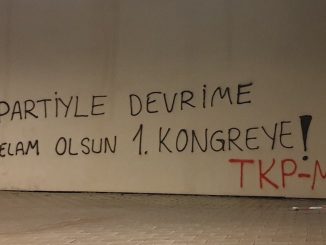 PARTİYLE DEVRİME
ELAM OLSUN 1. KONGREYE!
TKP-M